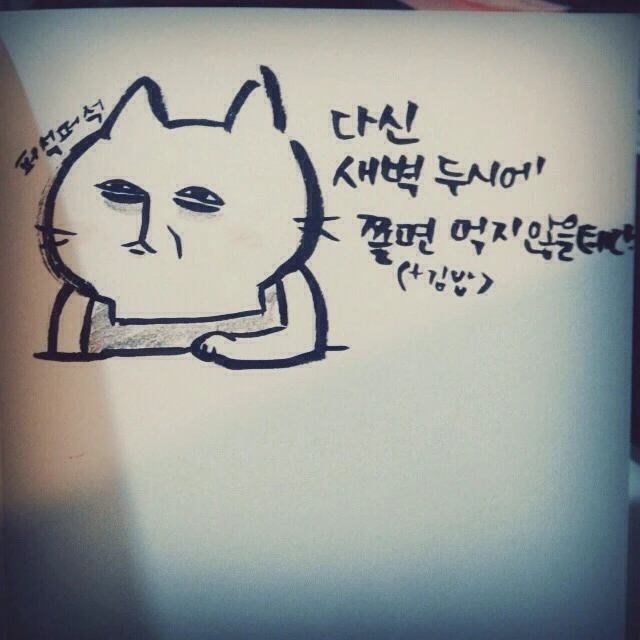 퍼석퍼석
다신
새벽 두시에
쫄면 먹지않을테다
(+김밥)